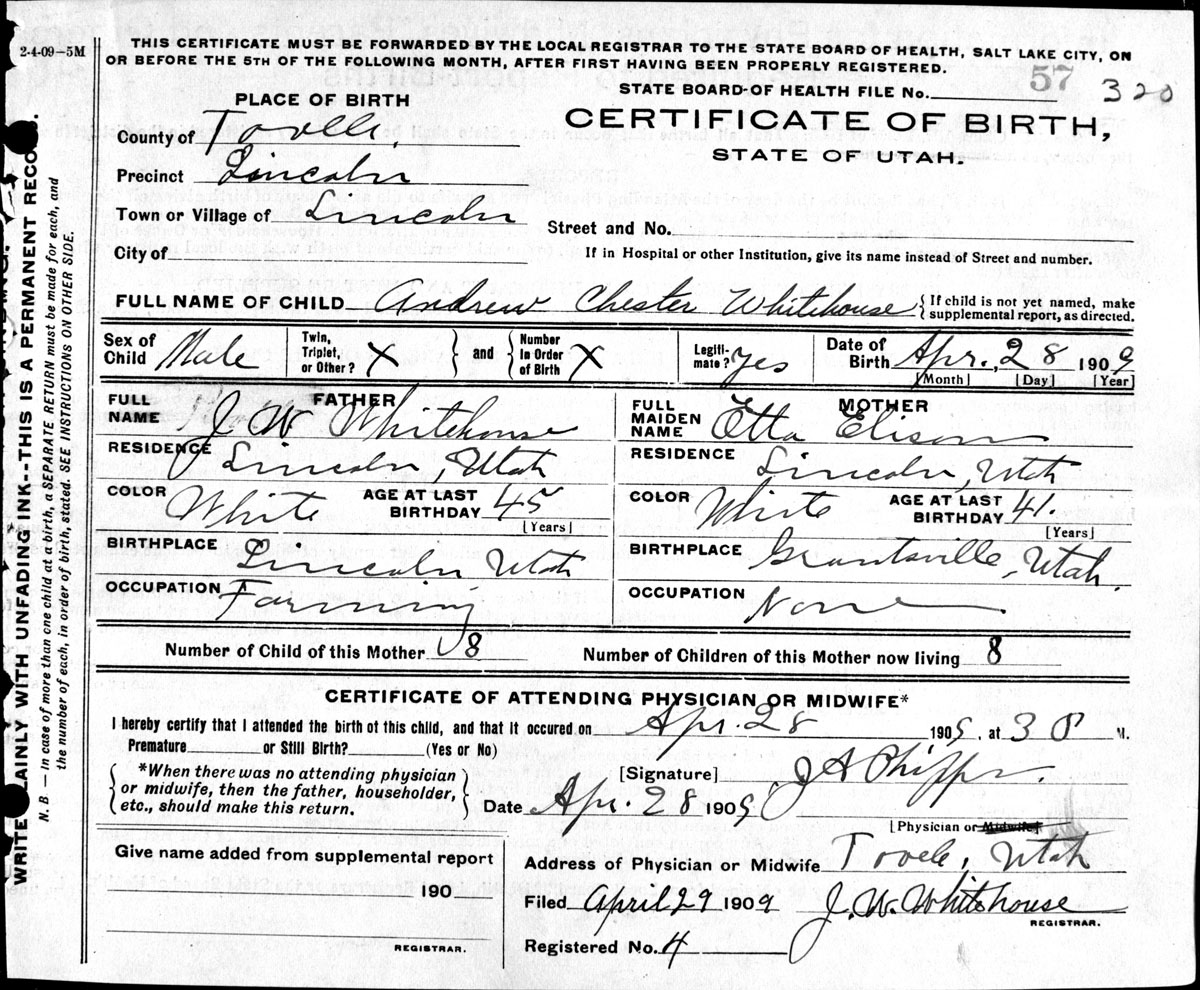 2-4-09-5M
THIS CERTIFICATE MUST BE FORWARDED BY THE LOCAL REGISTRAR TO THE STATE BOARD OF HEALTH, SALT LAKE CITY, ON
OR BEFORE THE 5TH OF THE FOLLOWING MONTH, AFTER FIRST HAVING BEEN PROPERLY REGISTERED.
57 320
STATE BOARD OF HEALTH FILE No.
PLACE OF BIRTH
CERTIFICATE OF BIRTH,
STATE OF UTAH.
County of Tooele
Precinct Lincoln
Town or Village of Lincoln
Street and No.
City of
If in Hospital or other Institution, give its name instead of Street and number.
FULL NAME OF CHILD Andrew Chester Whitehouse { If child is not yet named, make
supplemental report, as directed.
Sex of Child Male Twin, Triplet, or Other? X } and { Number In Order of Birth X Legiti-mate? Yes Date of Birth Apr. 28 1909
[Month] [Day] [Year]
FATHER
FULL NAME J. W. Whitehouse
RESIDENCE Lincoln, Utah
COLOR White AGE AT LAST BIRTHDAY 45
[Years]
BIRTHPLACE Lincoln Utah
OCCUPATION Farming
MOTHER
FULL MAIDEN NAME Etta Elison
RESIDENCE Lincoln, Utah
COLOR White AGE AT LAST BIRTHDAY 41.
[Years]
BIRTHPLACE Grantsville, Utah.
OCCUPATION None
Number of Child of this Mother 8 Number of Children of this Mother now living 8
CERTIFICATE OF ATTENDING PHYSICIAN OR MIDWIFE*
I hereby certify that I attended the birth of this child, and that it occured on Apr. 28 1909, at 3 M.
Premature or Still Birth? (Yes or No)
{ *When there was no attending physician
or midwife, then the father, householder,
etc., should make this return. }
[Signature] J A Phipps.
Date Apr. 28 1909
[Physician or Midwife]
Give name added from supplemental report
190
REGISTRAR.
Address of Physician or Midwife Tooele, Utah
Filed April 29 1909 J. W. Whitehouse
REGISTRAR.
Registered No. 4
WRITE PLAINLY WITH UNFADING INK--THIS IS A PERMANENT RECORD.
N. B. — In case of more than one child at a birth, a SEPARATE RETURN must be made for each, and
the number of each, in order of birth, stated. SEE INSTRUCTIONS ON OTHER SIDE.